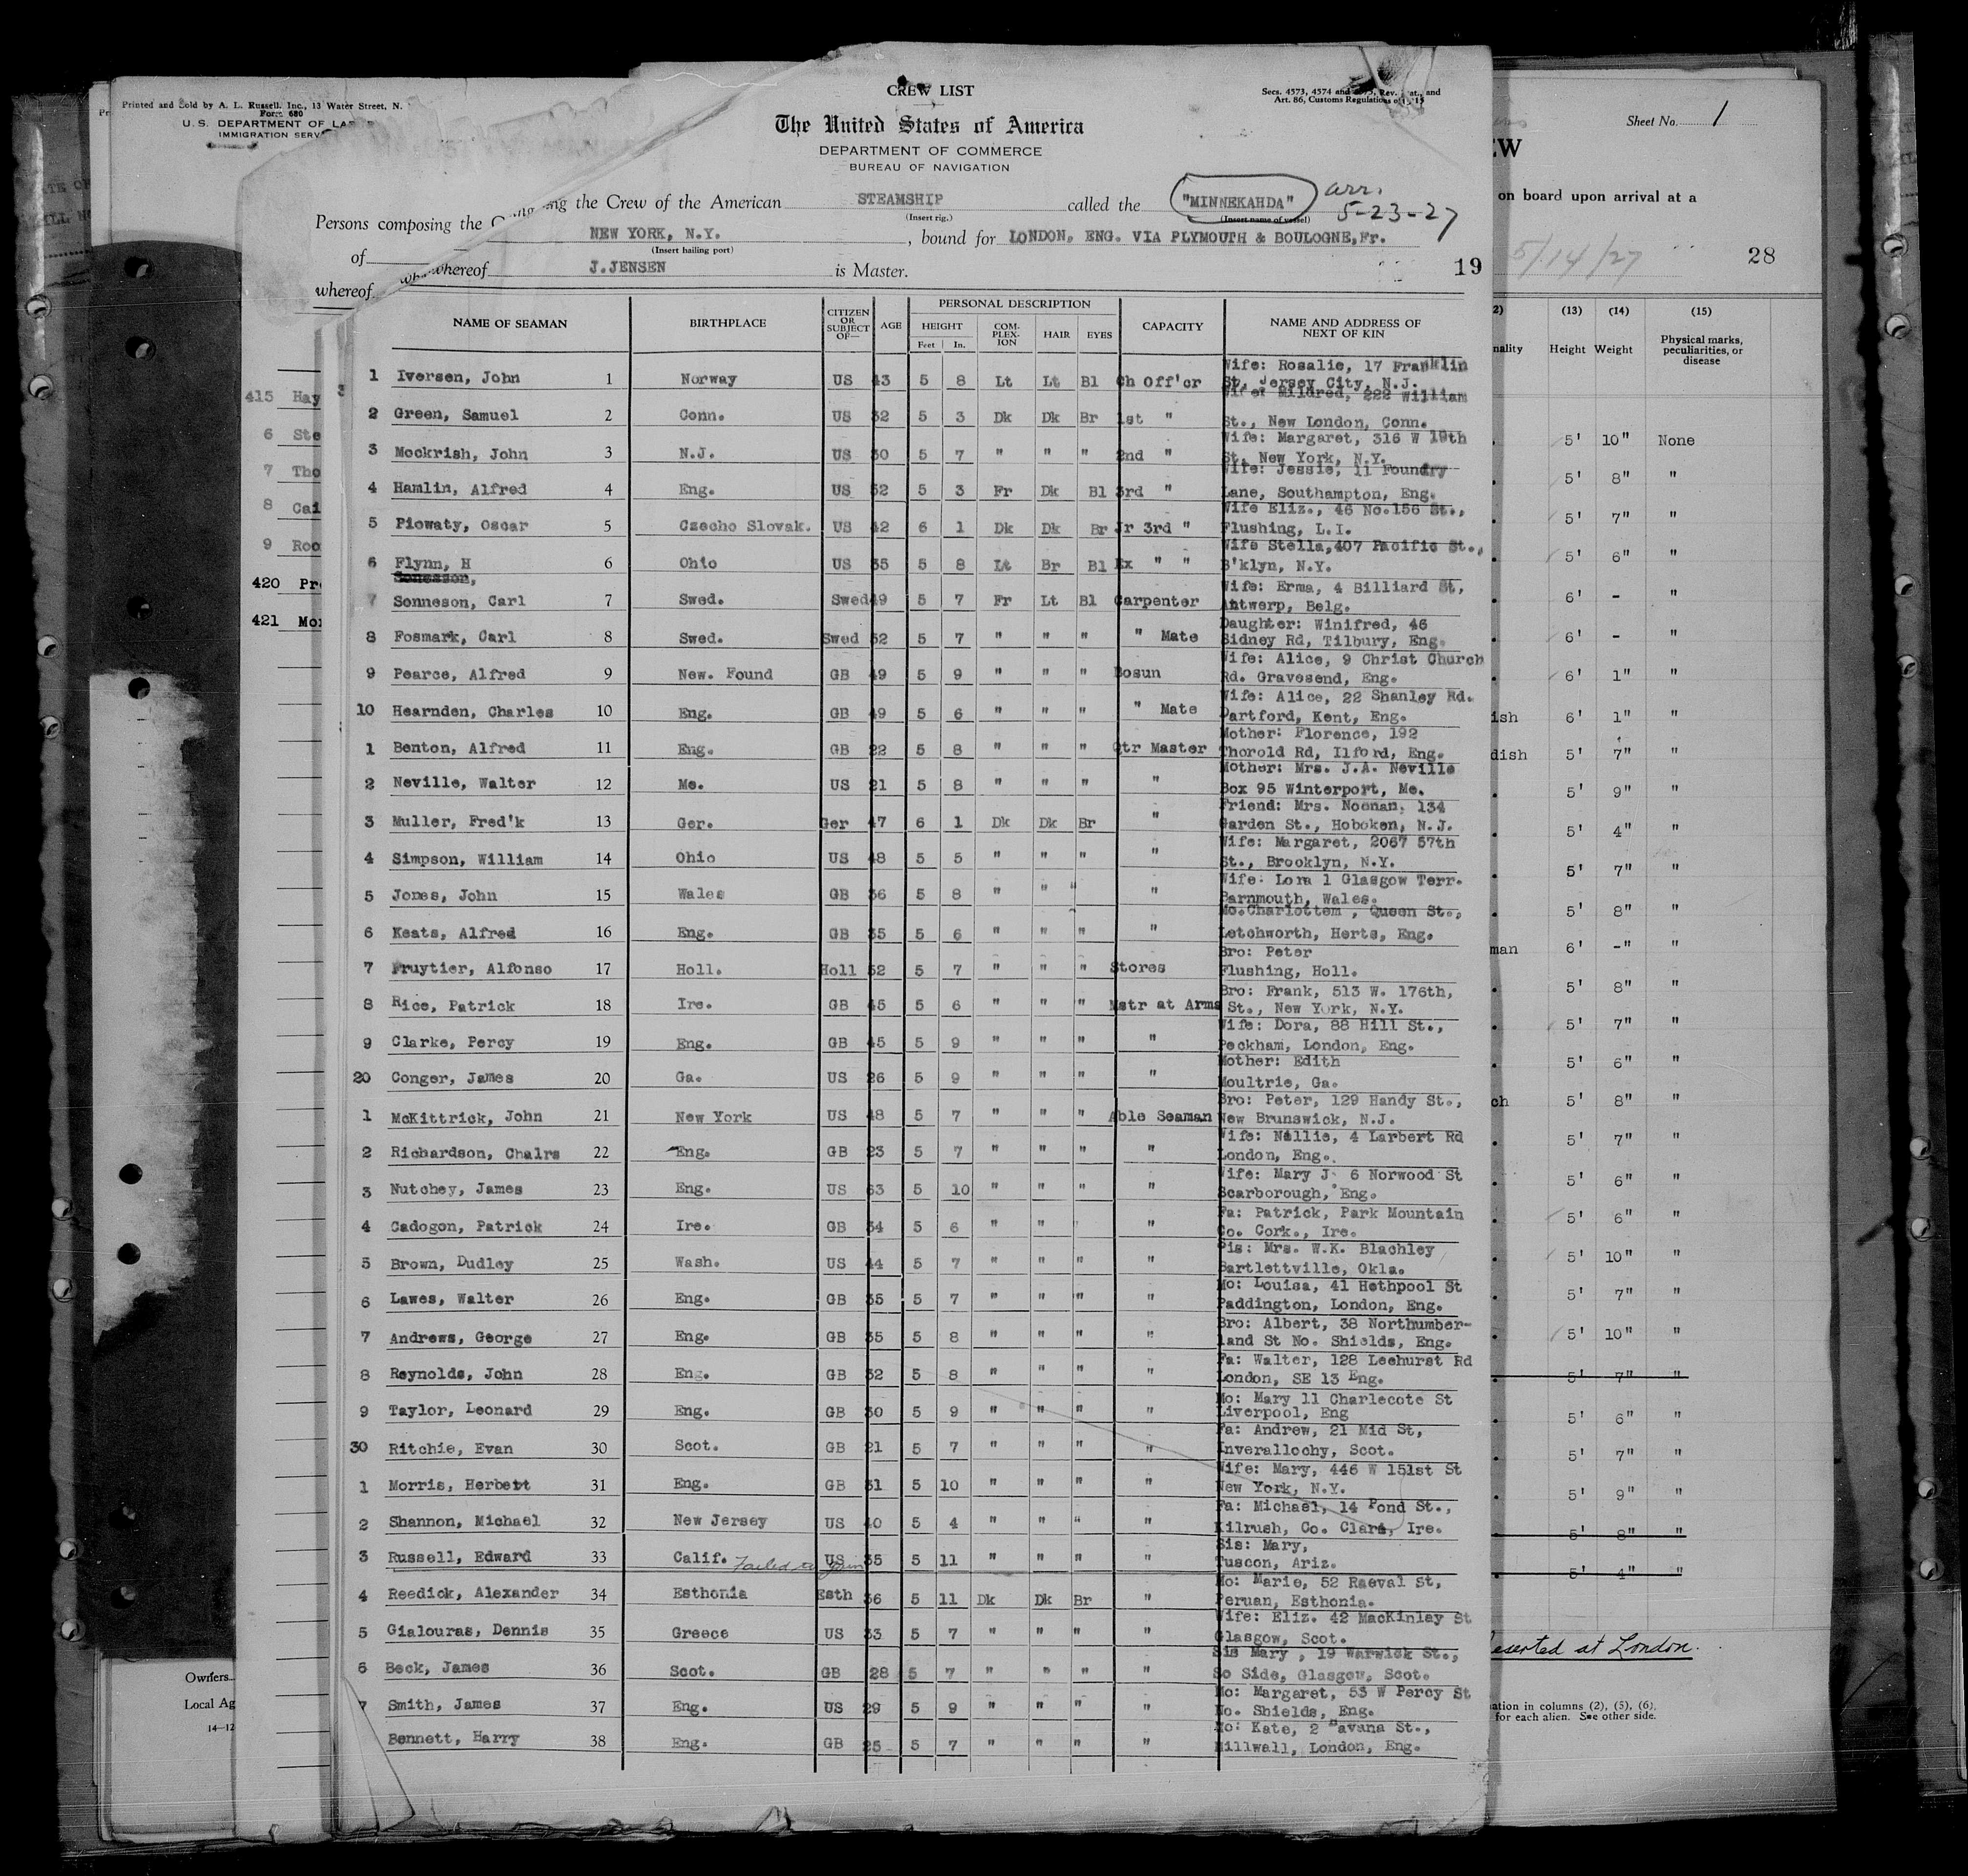 Printed and Sold by A. L. Russell, Inc., 13 Water Street, N.
Form 680
U.S. DEPARTMENT OF LA
IMMIGRATION SERV
CREW LIST
Secs. 4573, 4574 and Rev. and
Art. 86, Customs Regulations of 1915
The United States of America
DEPARTMENT OF COMMERCE
BUREAU OF NAVIGATION
Persons composing the
ing the Crew of the American STEAMSHIP called the "MINNEKAHDA" arr. 5-23-27
(Insert rig.) (Insert name of vessel)
of NEW YORK, N.Y., bound for LONDON, ENG. VIA PLYMOUTH & BOULOGNE, Fr.
(Insert hailing port)
whereof whereof J.JENSEN is Master. 19
NAME OF SEAMAN BIRTHPLACE CITIZEN OR SUBJECT OF— AGE PERSONAL DESCRIPTION CAPACITY NAME AND ADDRESS OF NEXT OF KIN
HEIGHT COM-PLEX-ION HAIR EYES
Feet In.
1 Iversen, John 1 Norway US 43 5 8 Lt Lt Bl Ch Off'cr Wife: Rosalie, 17 Franklin
St, Jersey City, N.J.
2 Green, Samuel 2 Conn. US 32 5 3 Dk Dk Br 1st " Wife: Mildred, 222 William
St., New London, Conn.
3 Mockrish, John 3 N.J. US 30 5 7 " " " 2nd " Wife: Margaret, 316 W 19th
St, New York, N.Y.
4 Hamlin, Alfred 4 Eng. US 52 5 3 Fr Dk Bl 3rd " Wife: Jessie, 11 Foundry
Lane, Southampton, Eng.
5 Piowaty, Oscar 5 Czecho Slovak. US 42 6 1 Dk Dk Br Jr 3rd " Wife Eliz., 46 No.156 St.,
Flushing, L.I.
6 Flynn, H 6 Ohio US 35 5 8 Lt Br Bl Ex " " Wife Stella,407 Pacific St.,
B'klyn, N.Y.
7 Sonneson, Carl 7 Swed. Swed 49 5 7 Fr Lt Bl Carpenter Wife: Erma, 4 Billiard St,
Antwerp, Belg.
8 Fosmark, Carl 8 Swed. Swed 52 5 7 " " " " Mate Daughter: Winifred, 46
Sidney Rd, Tilbury, Eng.
9 Pearce, Alfred 9 New. Found GB 49 5 9 " " " Bosun Wife: Alice, 9 Christ Church
Rd. Gravesend, Eng.
10 Hearnden, Charles 10 Eng. GB 49 5 6 " " " " Mate Wife: Alice, 22 Shanley Rd.
Dartford, Kent, Eng.
1 Benton, Alfred 11 Eng. GB 22 5 8 " " " Qtr Master Mother: Florence, 192
Thorold Rd, Ilford, Eng.
2 Neville, Walter 12 Me. US 21 5 8 " " " " Mother: Mrs. J.A. Neville
Box 95 Winterport, Me.
3 Muller, Fred'k 13 Ger. Ger 47 6 1 Dk Dk Br " Friend: Mrs. Noonan, 134
Garden St., Hoboken, N.J.
4 Simpson, William 14 Ohio US 48 5 5 " " " " Wife: Margaret, 2067 57th
St., Brooklyn, N.Y.
5 Jones, John 15 Wales GB 36 5 8 " " " " Wife: Lora 1 Glasgow Terr.
Barnmouth, Wales.
6 Keats, Alfred 16 Eng. GB 35 5 6 " " " " Mo.Charlottem , Queen St.,
Letchworth, Herts, Eng.
7 Fruytier, Alfonso 17 Holl. Holl 52 5 7 " " " Stores Bro: Peter
Flushing, Holl.
8 Rice, Patrick 18 Ire. GB 45 5 6 " " " Mstr at Arms Bro: Frank, 513 W. 176th,
St., New York, N.Y.
9 Clarke, Percy 19 Eng. GB 45 5 9 " " " " Wife: Dora, 88 Hill St.,
Peckham, London, Eng.
20 Conger, James 20 Ga. US 26 5 9 " " " " Mother: Edith
Moultrie, Ga.
1 McKittrick, John 21 New York US 48 5 7 " " " Able Seaman Bro: Peter, 129 Handy St.,
New Brunswick, N.J.
2 Richardson, Chalrs 22 Eng. GB 23 5 7 " " " " Wife: Nellie, 4 Larbert Rd
London, Eng.
3 Nutchey, James 23 Eng. US 63 5 10 " " " " Wife: Mary J. 6 Norwood St
Scarborough, Eng.
4 Cadogon, Patrick 24 Ire. GB 34 5 6 " " " " Fa: Patrick, Park Mountain
Co. Cork., Ire.
5 Brown, Dudley 25 Wash. US 44 5 7 " " " " Sis: Mrs. W.K. Blachley
Bartlettville, Okla.
6 Lawes, Walter 26 Eng. GB 35 5 7 " " " " Mo: Louisa, 41 Hethpool St
Paddington, London, Eng.
7 Andrews, George 27 Eng. GB 35 5 8 " " " " Bro: Albert, 38 Northumber-
land St No. Shields, Eng.
8 Reynolds, John 28 Eng. GB 32 5 8 " " " " Fa: Walter, 128 Leehurst Rd
London, SE 13 Eng.
9 Taylor, Leonard 29 Eng. GB 30 5 9 " " " " Mo: Mary 11 Charlecote St
Liverpool, Eng
30 Ritchie, Evan 30 Scot. GB 21 5 7 " " " " Fa: Andrew, 21 Mid St,
Inverallochy, Scot.
1 Morris, Herbert 31 Eng. GB 31 5 10 " " " " Wife: Mary, 446 W 151st St
New York, N.Y.
2 Shannon, Michael 32 New Jersey US 40 5 4 " " " " Fa: Michael, 14 Pond St.,
Kilrush, Co. Clare, Ire.
3 Russell, Edward 33 Calif. Failed to Join US 35 5 11 " " " " Sis: Mary,
Tuscon, Ariz.
4 Reedick, Alexander 34 Esthonia Esth 36 5 11 Dk Dk Br " Mo: Marie, 52 Raeval St,
Peruan, Esthonia.
5 Gialouras, Dennis 35 Greece US 33 5 7 " " " " Wife: Eliz. 42 MacKinlay St
Glasgow, Scot.
6 Beck, James 36 Scot. GB 28 5 7 " " " " Sis Mary , 19 Warwick St.,
So Side, Glasgow, Scot.
7 Smith, James 37 Eng. US 29 5 9 " " " " Mo: Margaret, 53 W Percy St
No. Shields, Eng.
Bennett, Harry 38 Eng. GB 25 5 7 " " " " Mo: Kate, 2 Havana St.,
Millwall, London, Eng.
415 Hay
6 Ste
7 Tho
8 Cai
9 Roo
420 Pr
421 Mo
Owners
Local Ag
14—12
Sheet No. 1
EW
on board upon arrival at a
5/14/27 28
(13) (14) (15)
nality Height Weight Physical marks, peculiarities, or disease
5' 10" None
5' 8" "
5' 7" "
5' 6" "
6' - "
6' - "
6' 1" "
ish 6' 1" "
dish 5' 7" "
5' 9" "
5' 4" "
5' 7" "
5' 8" "
man 6' -" "
5' 8" "
5' 7" "
5' 6" "
ch 5' 8" "
5' 7" "
5' 6" "
5' 6" "
5' 10" "
5' 7" "
5' 10" "
5' 7" "
5' 6" "
5' 7" "
5' 9" "
5' 8" "
5' 4" "
eserted at London.
ation in columns (2), (5), (6),
for each alien. See other side.